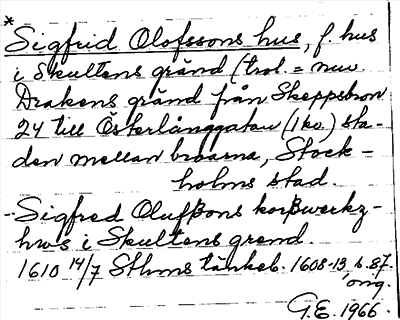 * Sigfrid Olofssons hus, f. hus
i Skultens gränd (trol. = nuv.
Drakens gränd från Skeppsbron
24 till Österlånggatan (1 kv.) sta-
den mellan broarna, Stock-
holms stad.
Sigfred Olufßons korßwerkz-
hws i Skultens grend.
1610 14/7 Sthms tänkeb. 1608-13, s. 87.
orig.
G.E. 1966.